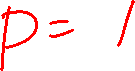 P = 1